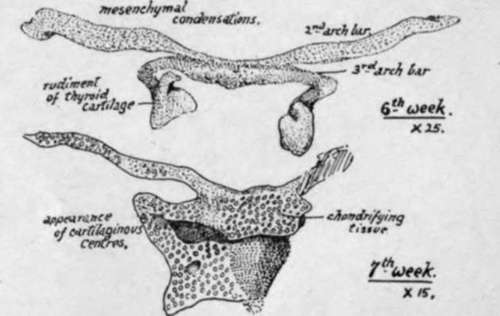 mesenchymal
condensations.
2nd arch bar.
3rd arch bar
rudiment
of thyroid
cartilage
6th week.
X 25.
appearance
of cartilaginous
centres.
chondrifying
tissue
7th week.
X 15.